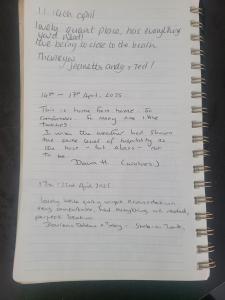 11 - 14th April
lovely quaint place, has everything
you'd need!
love being so close to the
Thankyou
Jeanette andy + Ted!
14th - 17th April, 2025.
This is home from home. So
comfortable. So many nice little
touches.
I wish the weather had shown
the same level of hospitality as
the host - but alas - not
to be.
Dawn H.
17th - 22nd April 2025
lovely well
very comfortable, had everything we needed,
perfect location